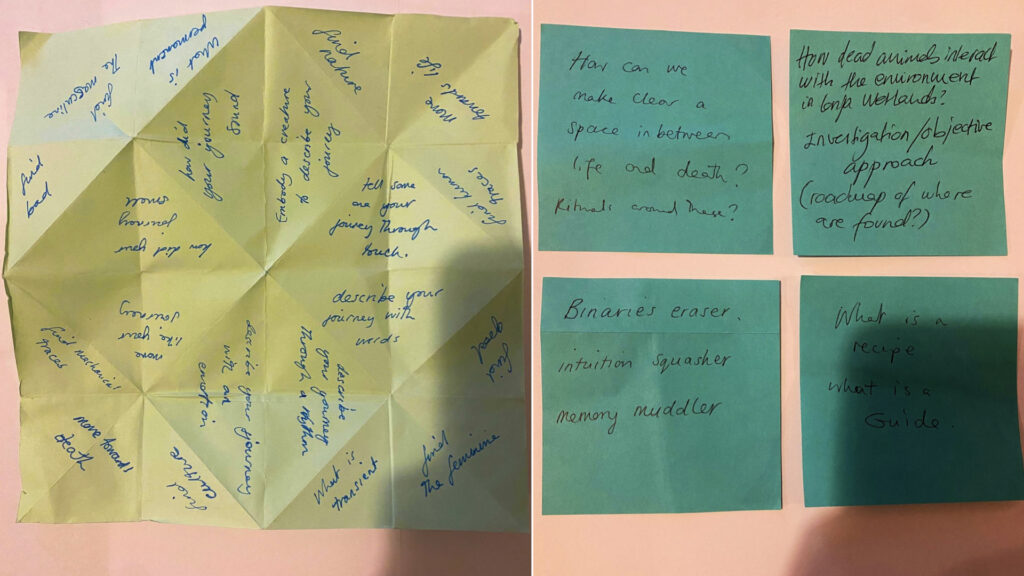 What is
permanent
find
The masculine
find
nature
move
towards
life
how did
your journey
sound
Embody a creature
to describe your
journey
find human
traces
find
bad
how did your
journey
smell
tell some
are your
journey through
touch.
describe your
journey with
words
move
like your
journey
find mechanical
traces
describe your journey
with an
emotion
describe
your journey
through a rhythm
find
good
move towards
death
find
culture
What is
transient
find
The feminine
How can we
make clear a
space in between
life and death?
Rituals around these?
How dead animals interact
with the environment
in wetlands?
Investigation/objective
approach
(roadmap of where
are found?)
Binaries eraser.
intuition squasher
memory muddler
What is a
recipe
what is a
Guide.